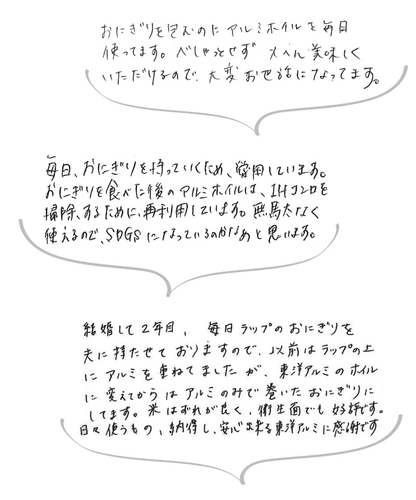 おにぎりを包むのにアルミホイルを毎日
使ってます。べしゃっとせず 大へん美味しく
いただけるので、大変お世話になってます。
毎日、おにぎりを持っていくため、常用しています。
おにぎりを食べた後のアルミホイルは、IHコンロを
掃除するために、再利用しています。無駄なく
使えるので、SDGSになっているのかなあと思います。
結婚して2年目、毎日ラップのおにぎりを
夫に持たせておりますので、以前はラップの上
にアルミを重ねてましたが、東洋アルミのホイル
に変えてからはアルミのみで巻いたおにぎりに
してます。米はずれが良く、衛生面でも好評です。
日々使うもの、納得し、安心出来る東洋アルミに感謝です